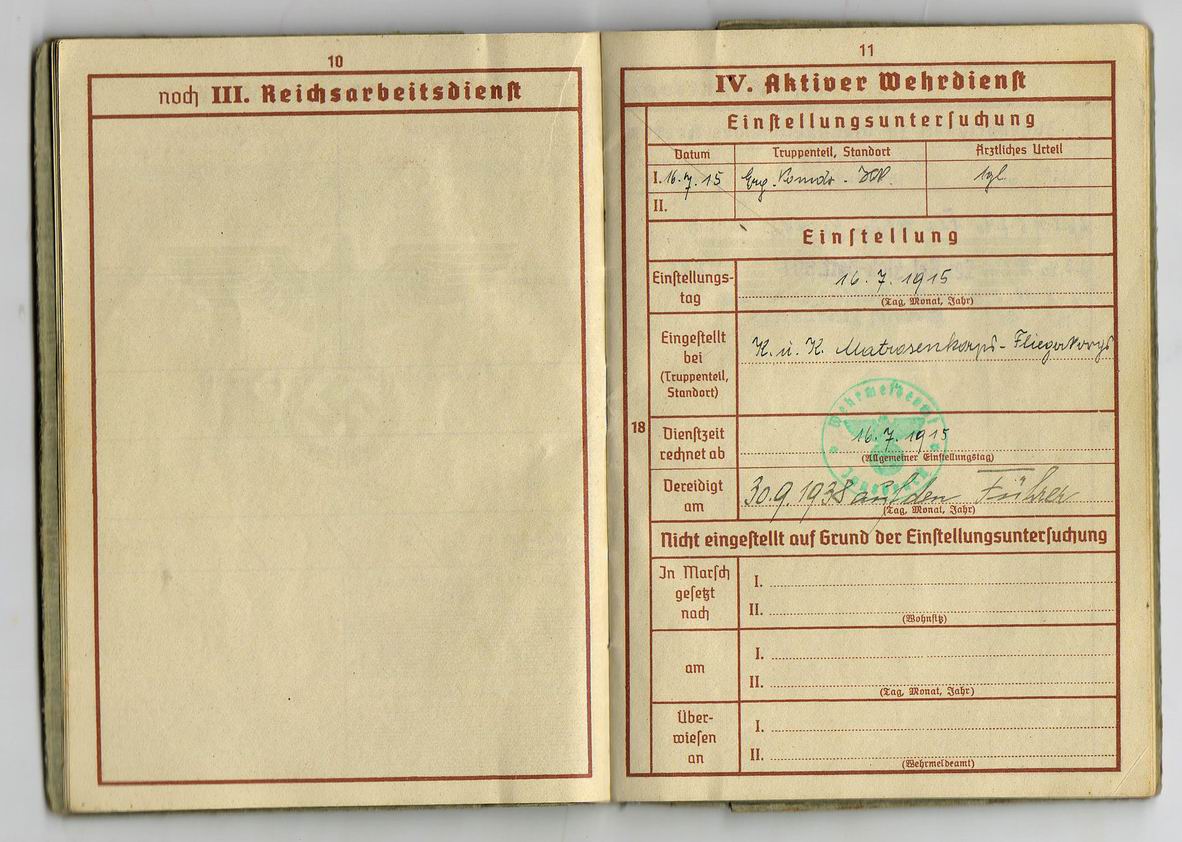 10
noch III. Reichsarbeitsdienst
11
IV. Aktiver Wehrdienst
Einstellungsuntersuchung
Datum Truppenteil, Standort Ärztliches Urteil
I. 16.7.15 tgl.
II.
Einstellung
Einstellungs-
tag
16. 7. 1915
(Tag, Monat, Jahr)
Eingestellt
bei
(Truppenteil,
Standort)
K. u. K. Matrosenkorps - Fliegerkorps
Wehrmeldeamt
18
Dienstzeit
rechnet ab
16. 7. 1915
(Allgemeiner Einstellungstag)
Vereidigt
am
30.9.1938 auf den Führer
(Tag, Monat, Jahr)
Nicht eingestellt auf Grund der Einstellungsuntersuchung
In Marsch
gesetzt
nach
I.
II.
(Wohnsitz)
am
I.
II.
(Tag, Monat, Jahr)
Über-
wiesen
an
I.
II.
(Wehrmeldeamt)